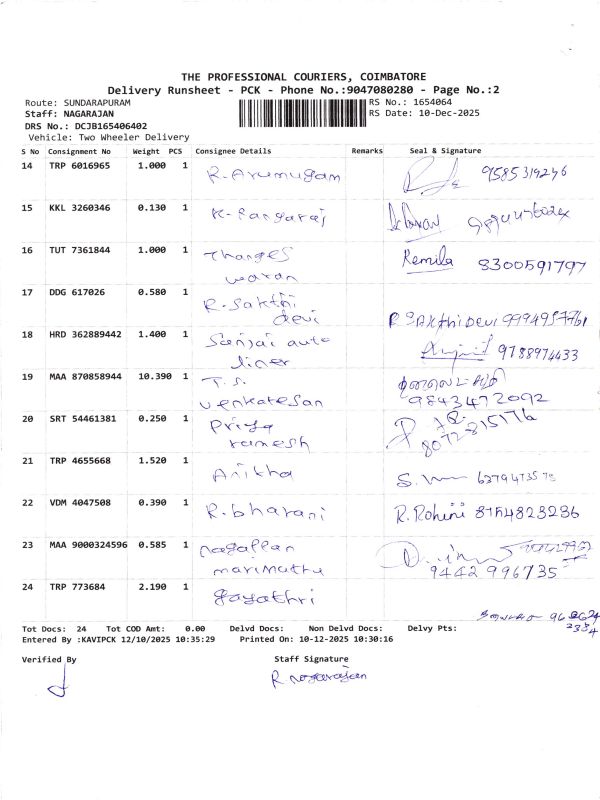 THE PROFESSIONAL COURIERS, COIMBATORE
Delivery Runsheet - PCK - Phone No.:9047080280 - Page No.:2
Route: SUNDARAPURAM RS No.: 1654064
Staff: NAGARAJAN RS Date: 10-Dec-2025
DRS No.: DCJB165406402
Vehicle: Two Wheeler Delivery
S No Consignment No Weight PCS Consignee Details Remarks Seal & Signature
14 TRP 6016965 1.000 1 R. Arumugam 9585319246
15 KKL 3260346 0.130 1 K. Rangaraj
16 TUT 7361844 1.000 1 Thanges Remila 8300591797
waran
17 DDG 617026 0.580 1 R. Sakthi
devi R SAKthiDevi 9994957761
18 HRD 362889442 1.400 1 Sanjai auto
liner 9788974433
19 MAA 870858944 10.390 1 T.S.
venkatesan 9843472092
20 SRT 54461381 0.250 1 Priya
ramesh 8072815176
21 TRP 4655668 1.520 1 Anitha
22 VDM 4047508 0.390 1 R. bharani R. Rohini 8754823236
23 MAA 9000324596 0.585 1 nagallan
marimathu 9442996735
24 TRP 773684 2.190 1 gayathri
Tot Docs: 24 Tot COD Amt: 0.00 Delvd Docs: Non Delvd Docs: Delvy Pts:
Entered By :KAVIPCK 12/10/2025 10:35:29 Printed On: 10-12-2025 10:30:16
Verified By Staff Signature
R nagarajan